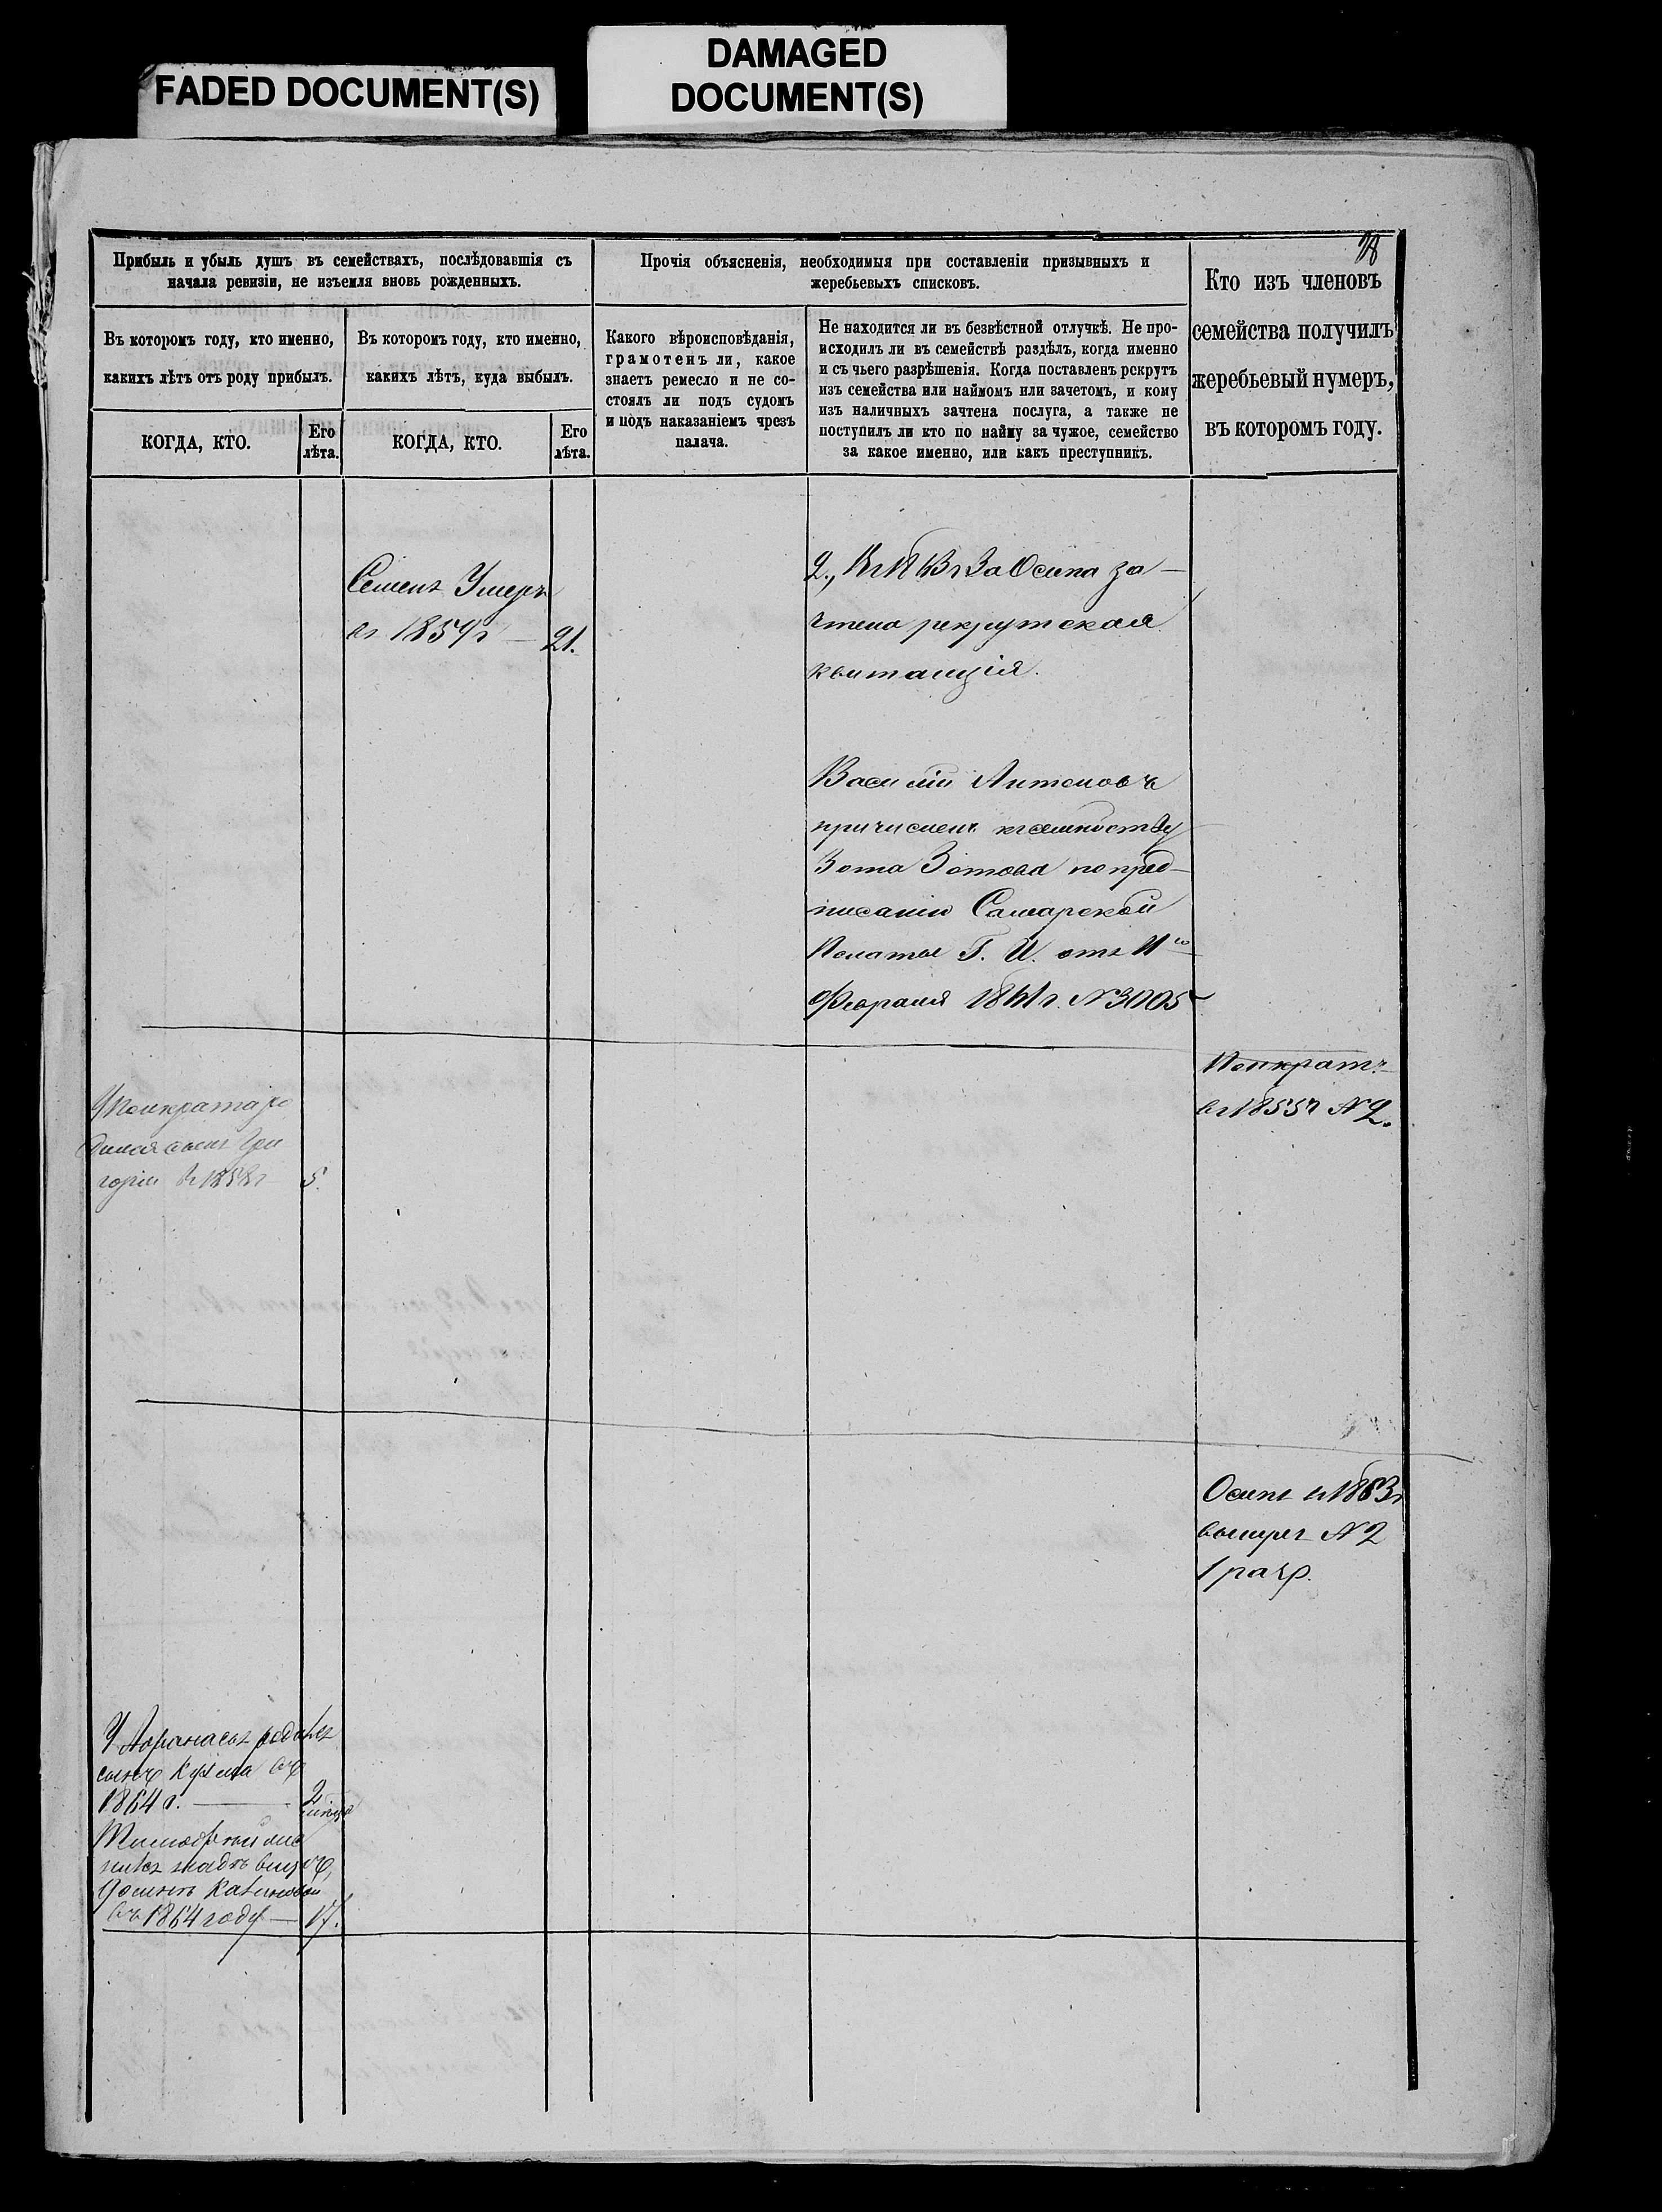 FADED DOCUMENT(S)
DAMAGED
DOCUMENT(S)
Прибыль и убыль душъ въ семействахъ, послѣдовавшія съ
начала ревизіи, не изъемля вновь рожденныхъ.
Въ которомъ году, кто именно,
какихъ лѣтъ отъ роду прибылъ.
КОГДА, КТО.
Его
лѣта.
Въ которомъ году, кто именно,
какихъ лѣтъ, куда выбылъ.
КОГДА, КТО.
Его
лѣта.
Прочія объясненія, необходимыя при составленіи призывныхъ и
жеребьевыхъ списковъ.
Какого вѣроисповѣданія,
грамотенъ ли, какое
знаетъ ремесло и не со-
стоялъ ли подъ судомъ
и подъ наказаніемъ чрезъ
палача.
Не находится ли въ безвѣстной отлучкѣ. Не про-
исходилъ ли въ семействѣ раздѣлъ, когда именно
и съ чьего разрѣшенія. Когда поставленъ рекрутъ
изъ семейства или наймомъ или зачетомъ, и кому
изъ наличныхъ зачтена послуга, а также не
поступилъ ли кто по найму за чужое, семейство
за какое именно, или какъ преступникъ.
Кто изъ членовъ
семейства получилъ
жеребьевый нумеръ,
въ которомъ году.
Семенъ Умеръ
въ 1859г — 21.
За Осипа за-
чтена рекрутская
квитанція.
Василій Антоновъ
причисленъ къ семейству
Зота Зотова по пред-
писанію Самарской
Палаты Г. И. отъ
Февраля 1861г. №3005
Панкратъ
въ 1855г №2.
У Панкрата ро
дился сынъ Гри
горій въ 1858г 5.
Осипъ въ 1863г
вынулъ №2
1 разр.
У Афанасья родился
сынъ Кузма въ
1864 г. — 2
Тимофей
въ 1864 году — 17.